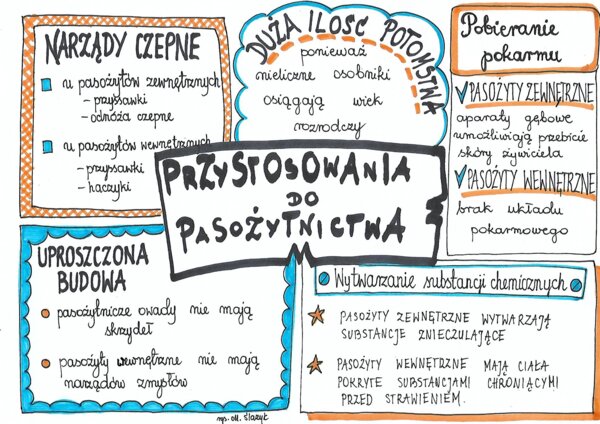 NARZĄDY CZEPNE
u pasożytów zewnętrznych
- przyssawki
- odnóża czepne
u pasożytów wewnętrznych
- przyssawki
- haczyki
DUŻA ILOŚĆ POTOMSTWA
ponieważ
nieliczne osobniki
osiągają wiek
rozrodczy
Pobieranie
pokarmu
PASOŻYTY ZEWNĘTRZNE
aparaty gębowe
umożliwiają przebicie
skóry żywiciela
PASOŻYTY WEWNĘTRZNE
brak układu
pokarmowego
PRZYSTOSOWANIA
DO
PASOŻYTNICTWA
UPROSZCZONA
BUDOWA
pasożytnicze owady nie mają
skrzydeł
pasożyty wewnętrzne nie mają
narządów zmysłów
Wytwarzanie substancji chemicznych
PASOŻYTY ZEWNĘTRZNE WYTWARZAJĄ
SUBSTANCJE ZNIECZULAJĄCE
PASOŻYTY WEWNĘTRZNE MAJĄ CIAŁA
POKRYTE SUBSTANCJAMI CHRONIĄCYMI
PRZED STRAWIENIEM.
rys. M.